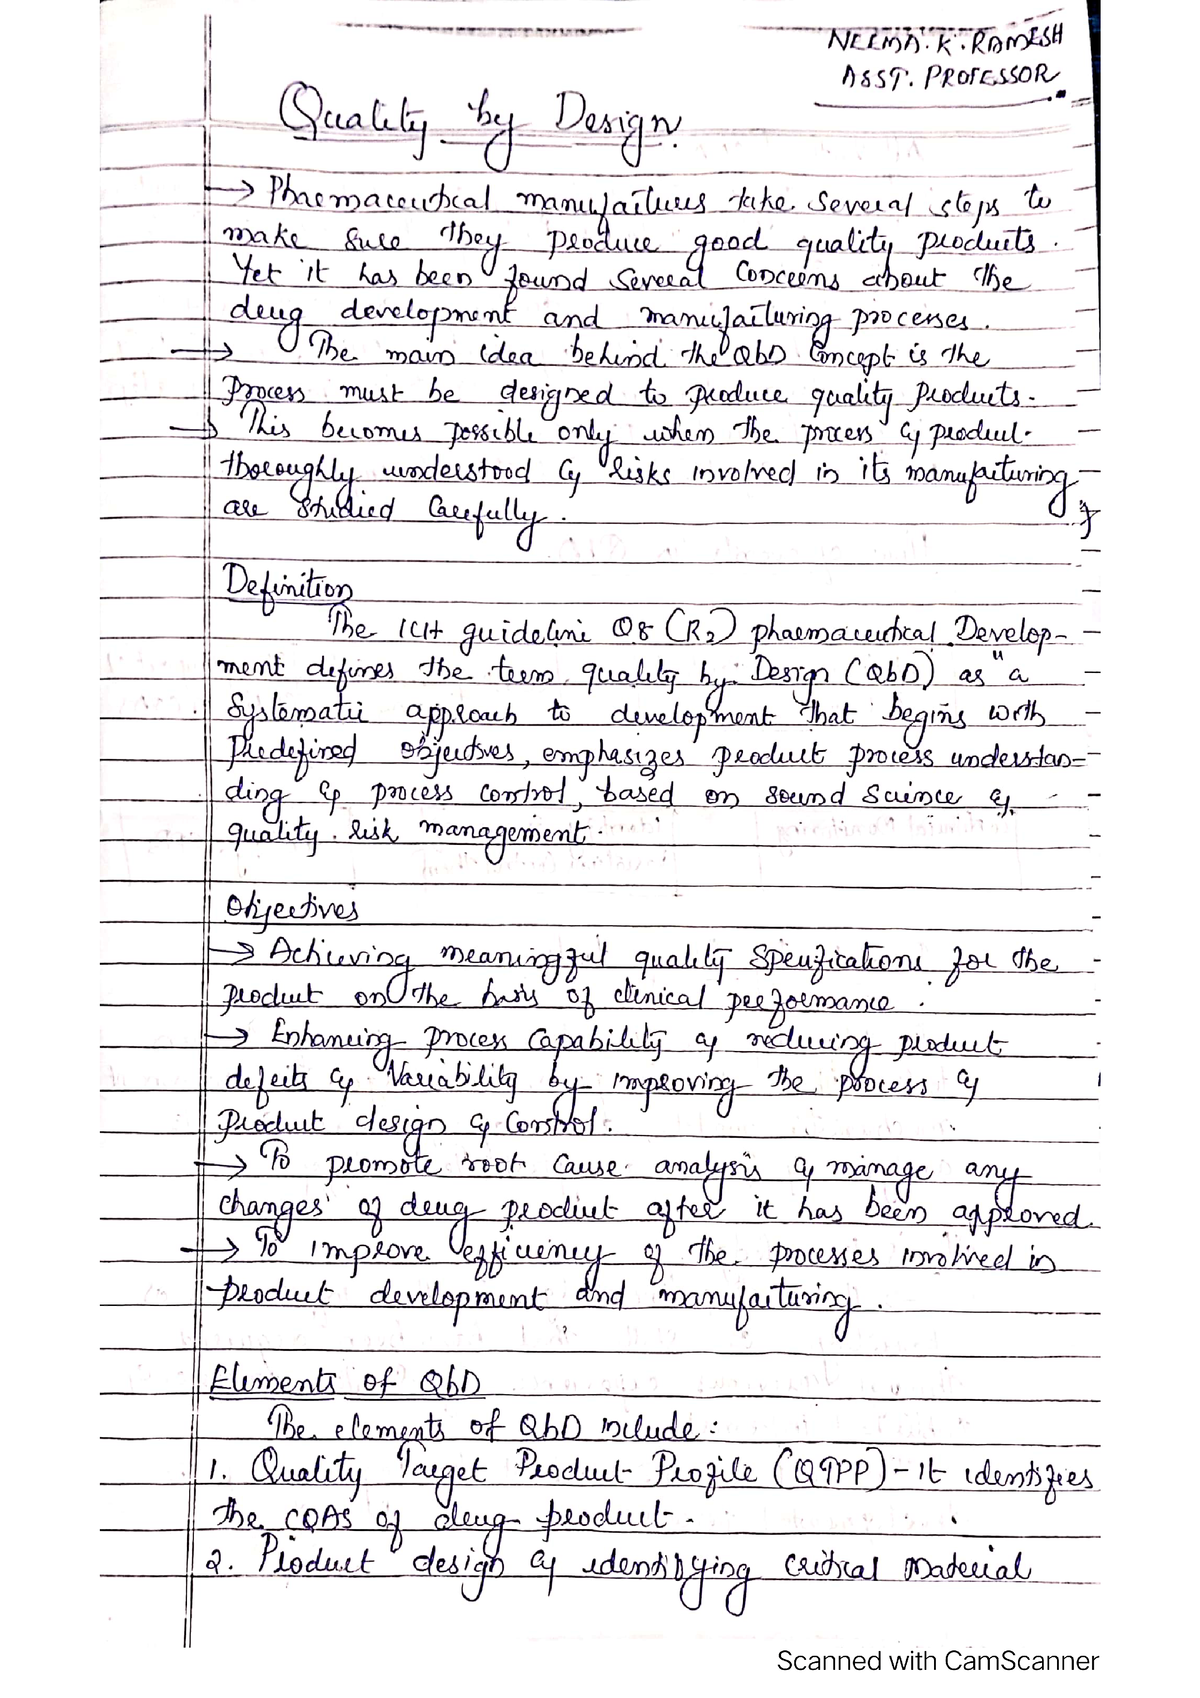 NEEMA. K. RAMESH
ASST. PROFESSOR
Quality by Design.
→ Pharmaceutical manufactures take several steps to
make sure they produce good quality products.
Yet it has been found several concerns about the
drug development and manufacturing processes.
→ The main idea behind the QbD concept is the
process must be designed to produce quality products.
→ This becomes possible only when the process & product
thoroughly understood & risks involved in its manufacturing
are studied carefully.
Definition
The ICH guideline Q8 (R2) pharmaceutical Develop-
ment defines the term quality by Design (QbD) as "a
systematic approach to development that begins with
predefined objectives, emphasizes product process understan-
ding & process control, based on sound science &
quality risk management.
Objectives
→ Achieving meaningful quality specifications for the
product on the basis of clinical performance.
→ Enhancing process capability & reducing product
defects & variability by improving the process &
product design & control.
→ To promote root cause analysis & manage any
changes of drug product after it has been approved.
→ To improve efficiency of the processes involved in
product development and manufacturing.
Elements of QbD
The elements of QbD include:
1. Quality Target Product Profile (QTPP) - it identifies
the CQAs of drug product.
2. Product design & identifying critical material
Scanned with CamScanner